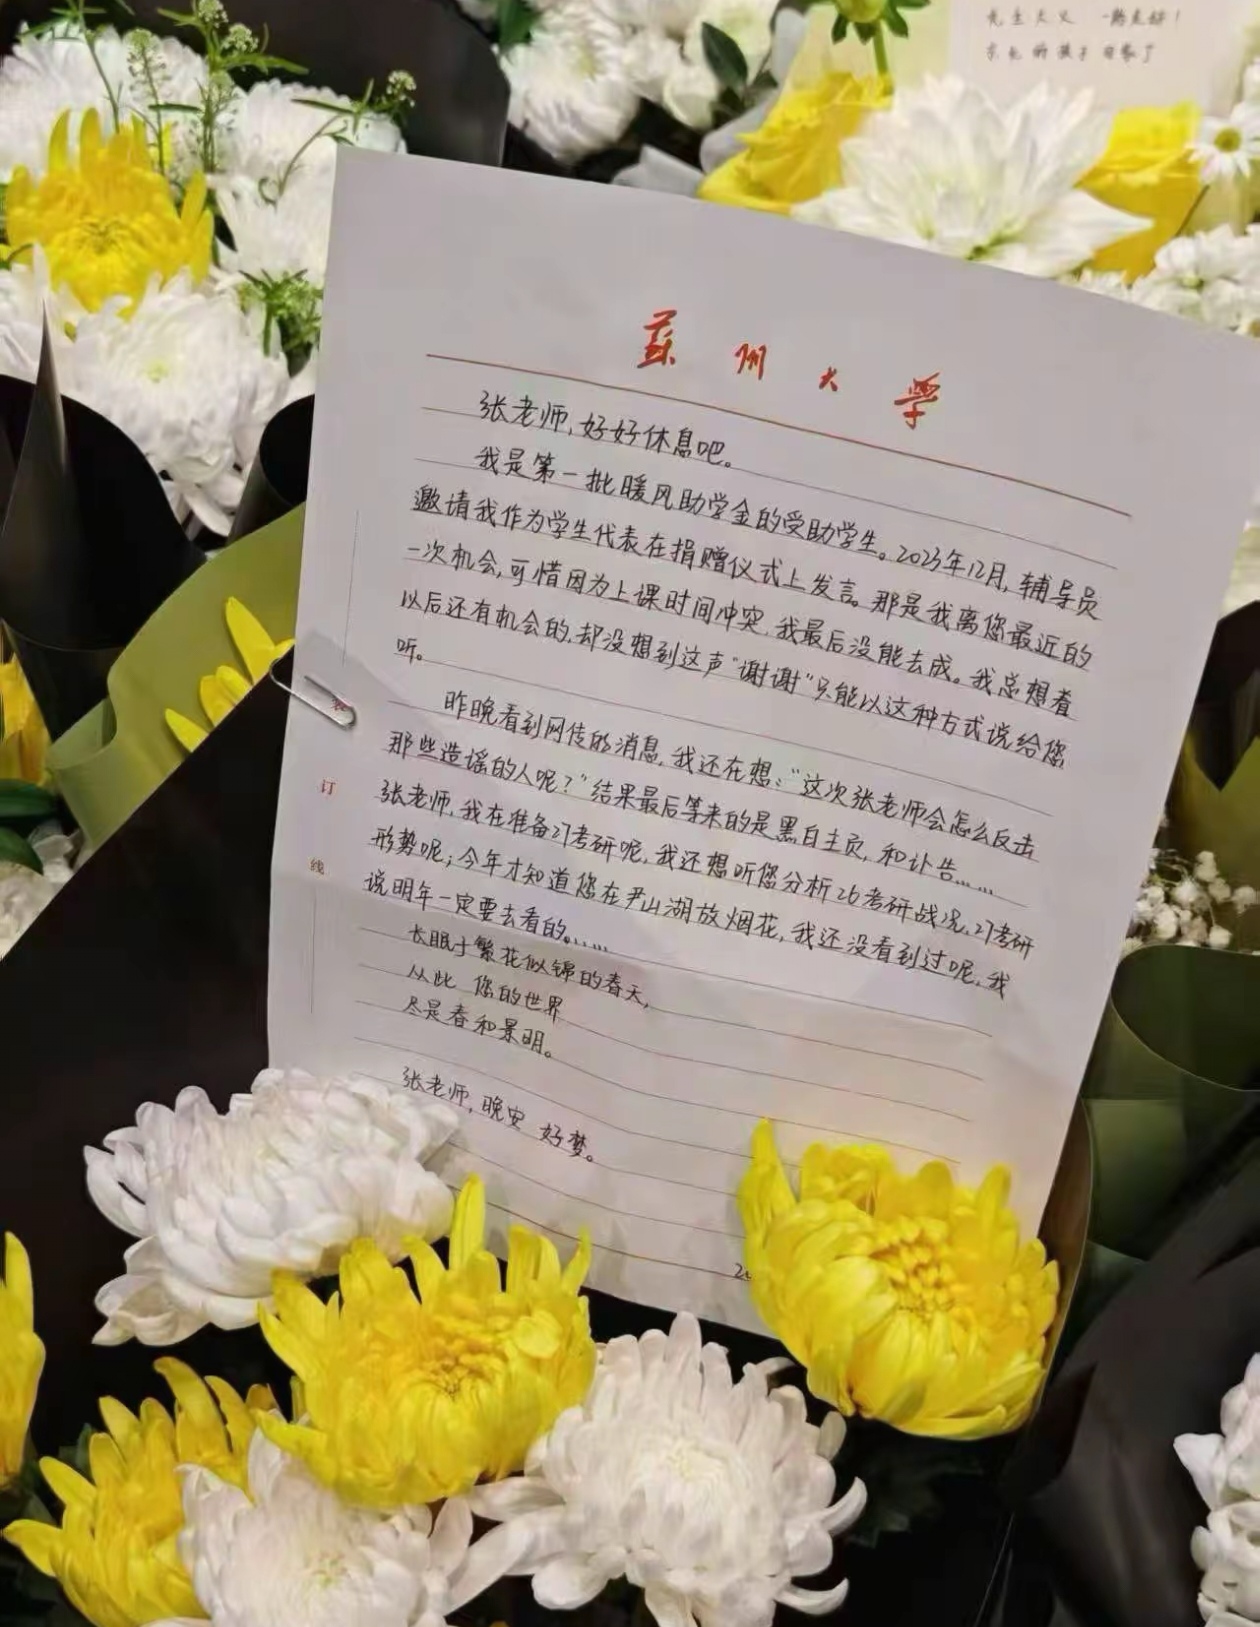 先生大义 一路走好！
苏大的孩子回家了
蘇州大學
张老师，好好休息吧。
我是第一批暖风助学金的受助学生。2023年12月，辅导员
邀请我作为学生代表在捐赠仪式上发言。那是我离您最近的
一次机会，可惜因为上课时间冲突，我最后没能去成。我总想着
以后还有机会的，却没想到这声“谢谢”只能以这种方式说给您
听。
昨晚看到网传的消息，我还在想：“这次张老师会怎么反击
那些造谣的人呢？”结果最后等来的是黑白主页，和讣告……
张老师，我在准备27考研呢，我还想听您分析26考研战况、27考研
形势呢；今年才知道您在尹山湖放烟花，我还没看到过呢，我
说明年一定要去看的……
长眠于繁花似锦的春天，
从此 您的世界
尽是春和景明。
张老师，晚安 好梦。
订
线